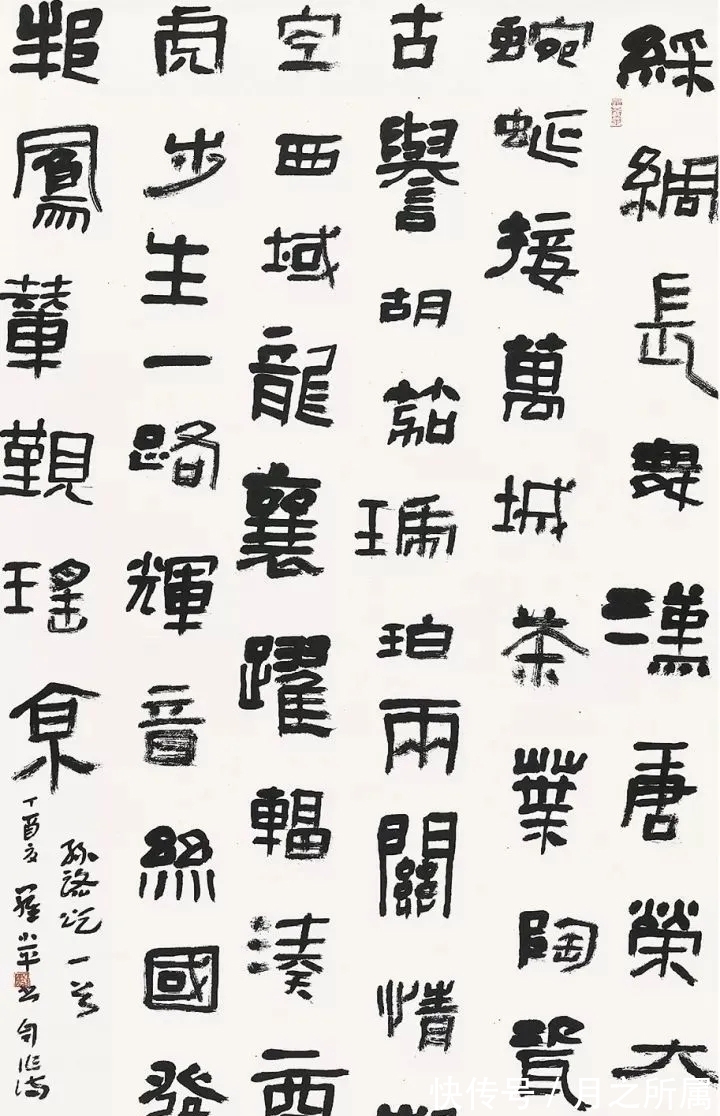 綵綢長舞漢唐榮大
蜿蜒接萬城茶葉陶瓷
古譽胡茄琥珀兩關情
空西域龍襄躍輻湊西
虎步生一路輝音絲國發
鳳輦觀瑤京
絲路頌一首
丁酉夏羅小平書
快传号 / 月之所属